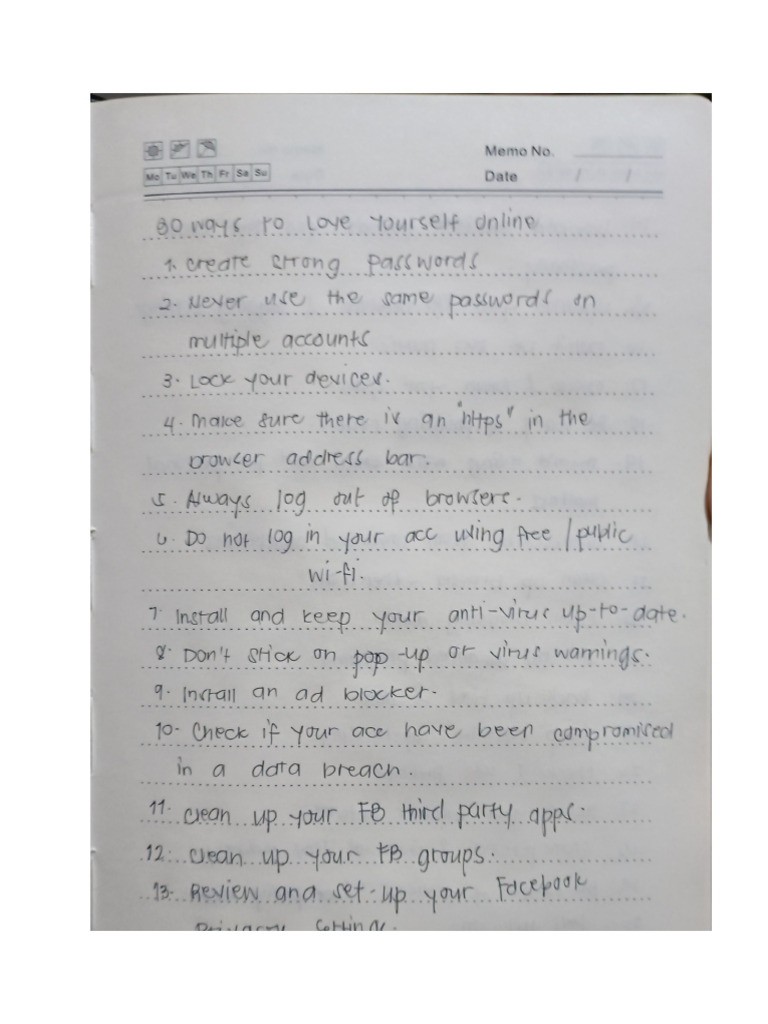 Memo No.
Mo Tu We Th Fr Sa Su
Date / /
30 ways to love yourself online
1. Create strong passwords
2. Never use the same passwords on
multiple accounts
3. Lock your devices.
4. Make sure there is an "https" in the
browser address bar.
5. Always log out of browsers.
6. Do not log in your acc using free / public
wi-fi.
7. Install and keep your anti-virus up-to-date.
8. Don't stick on pop-up or virus warnings.
9. Install an ad blocker.
10. Check if your acc have been compromised
in a data breach.
11. Clean up your FB third party apps.
12. Clean up your FB groups.
13. Review and set-up your Facebook
Privacy Setting.